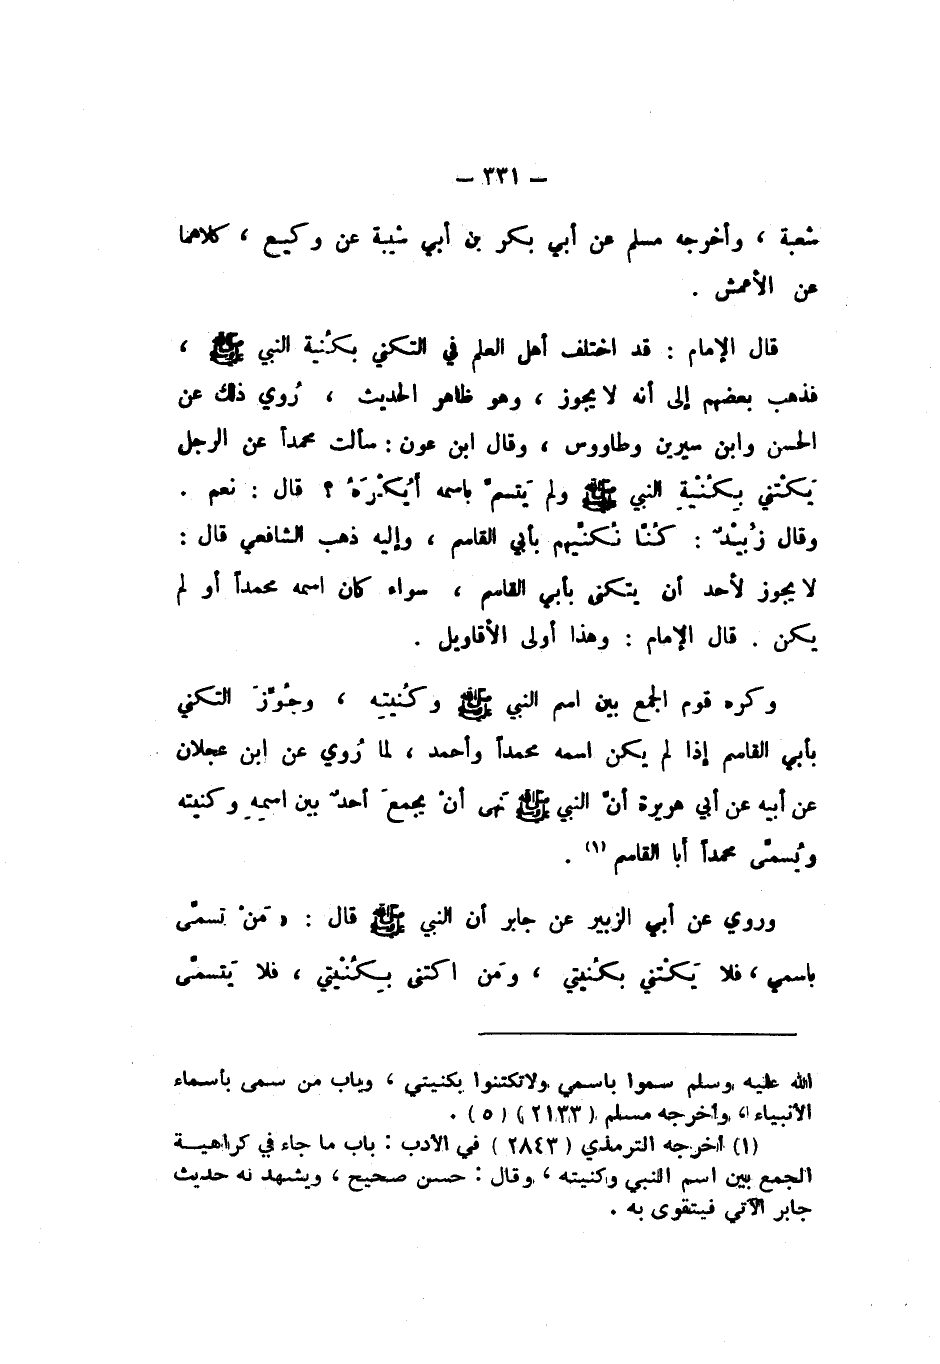 — ٣٣١ —
شعبة ، وأخرجه مسلم عن أبي بكر بن أبي شيبة عن وكيع ، كلاهما
عن الأعمش .
قال الإمام : قد اختلف أهل العلم في التكني بكُنية النبي ﷺ ،
فذهب بعضهم إلى أنه لا يجوز ، وهو ظاهر الحديث ، رُوي ذلك عن
الحسن وابن سيرين وطاووس ، وقال ابن عون : سألت محمداً عن الرجل
يَكْتني بِكُنْيَةِ النبي ﷺ ولم يَتسمَّ باسمه أَيُكْرَهُ ؟ قال : نعم .
وقال زُبيْدٌ : كُنَّا نُكنِّيهم بأبي القاسم ، وإليه ذهب الشافعي قال :
لا يجوز لأحد أن يتكنى بأبي القاسم ، سواء كان اسمه محمداً أو لم
يكن . قال الإمام : وهذا أولى الأقاويل .
وكره قوم الجمع بين اسم النبي ﷺ وكُنيتِه ، وجُوِّزَ التكني
بأبي القاسم إذا لم يكن اسمه محمداً وأحمد ، لما رُوي عن ابن عجلان
عن أبيه عن أبي هريرة أنَّ النبي ﷺ نَهى أنْ يجمعَ أحدٌ بين اسمِهِ وكنيته
ويُسمَّى محمداً أبا القاسم (١) .
وروي عن أبي الزبير عن جابر أن النبي ﷺ قال : « مَنْ تسمَّى
باسمي ، فلا يَكْتني بكُنيتي ، ومَن اكتنى بِكُنْيتي ، فلا يَتسمَّى
الله عليه وسلم سموا باسمي ولاتكتنوا بكنيتي ، وباب من سمى بأسماء
الأنبياء ، وأخرجه مسلم ( ٢١٣٣ ) ( ٥ ) .
(١) أخرجه الترمذي ( ٢٨٤٣ ) في الأدب : باب ما جاء في كراهيـة
الجمع بين اسم النبي وكنيته ، وقال : حسن صحيح ، ويشهد له حديث
جابر الآتي فيتقوى به .